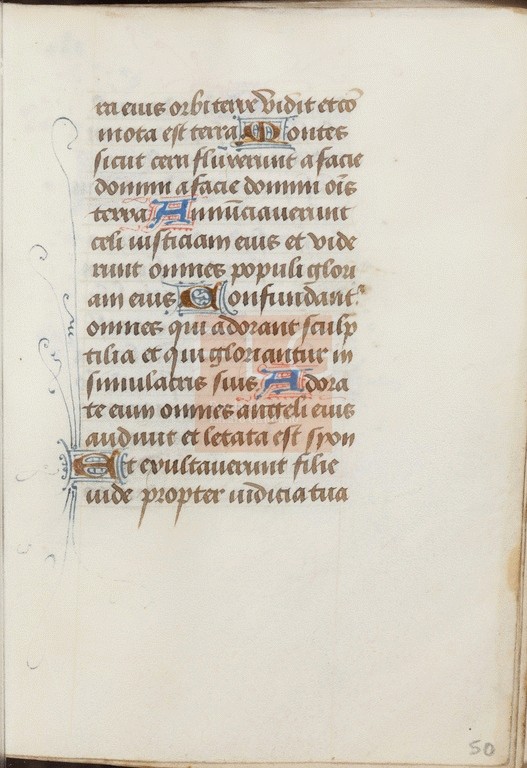 ra eius orbi terre Vidit et co
mota est terra Montes
sicut cera fluxerunt a facie
domini a facie domini oīs
terra Annūciaverunt
celi iusticiam eius et vide
runt omnes populi glori
am eius Confundant'
omnes qui adorant sculp
tilia et qui gloriantur in
simulacris suis Adora
te eum omnes angeli eius
audivit et letata est syon
Et exultaverunt filie
iude propter iudicia tua
50